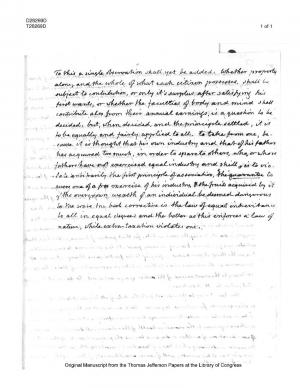 D28269D
T28269D
1 of 1
To this a single observation shall yet be added. Whether property
alone, and the whole of what each citizen possesses, shall be
subject to contribution, or only it's surplus after satisfying his
first wants, or whether the faculties of body and mind shall
contribute also from their annual earnings, is a question to be
decided. but, when decided, and the principle settled, it is
to be equally and fairly applied to all. to take from one, be-
cause it is thought that his own industry and that of his father's
has acquired too much, in order to spare to others, who, or whose
fathers have not exercised equal industry and skill, is to vio-
late arbitrarily the first principle of association, the guarantee to
every one of a free exercise of his industry & the fruits acquired by it
if the overgrown wealth of an individual be deemed dangerous
to the state, the best corrective is the law of equal inheritance
to all in equal degree and the better as this enforces a law of
nature, while extra-taxation violates one.
Original Manuscript from the Thomas Jefferson Papers at the Library of Congress